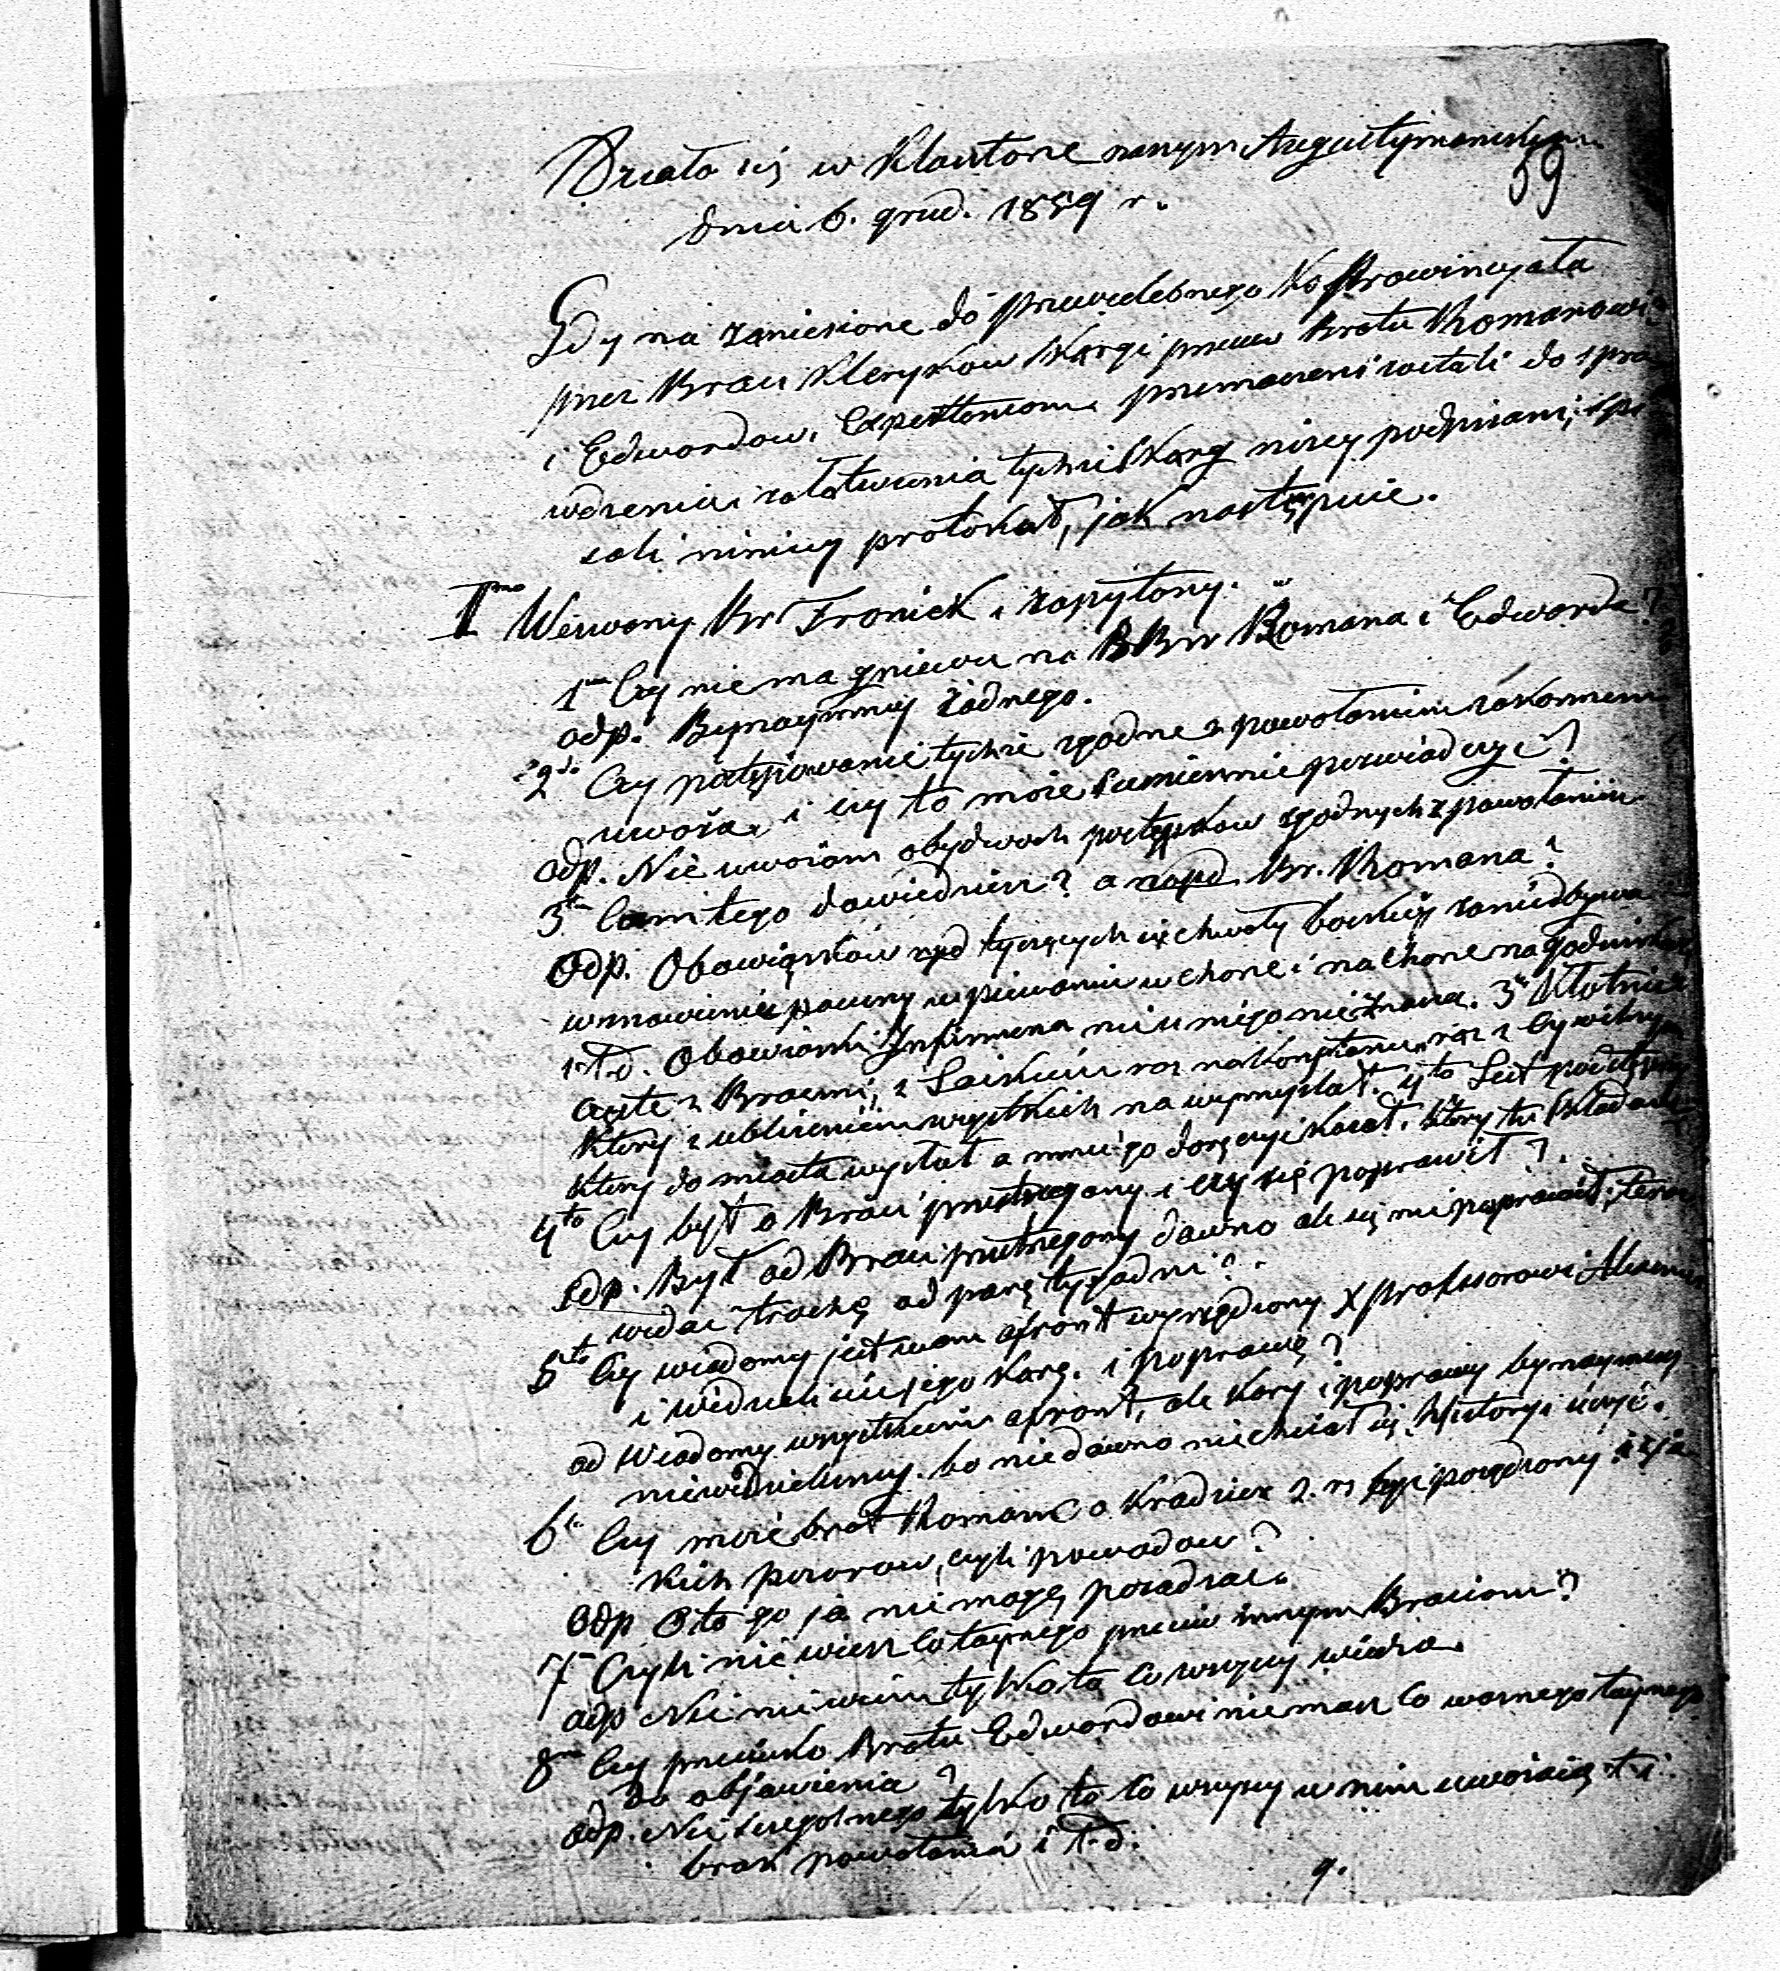 Działo się w Klasztorze naszym Augustyniańskim
59
dnia 6. grud. 1859 r.
Gdy na zaniesione do Przewielebnego Ks Prowincyała
przez Braci Kleryków skargi przeciw Bratu Romanowi
i Edwardow. Exposltoniom przeznaczeni zostali do spra
wdzenia i załatwienia tychże skarg niżey podpisani, spi
sali niniey protokuł, jak następuie.
I mo Wezwany Br Franciszek i zapytany.
1 mo Czy nie ma gniewu na BBw Romana i Edwarda?
odp. Bynaymniey żadnego.
2 do Czy postępowanie tychże zgodne z powołaniem zakonnem
uważa, i czy to może sumiennie poswiadczyć?
odp. Nie uważam obydwoch postępków zgodnych z powołaniem
3 tio Czem tego dowiedziesz? a napd. Br. Romana?
Odp. Obowiązków npd tyczących się chwały boskiey zaniedbywa
w mowieniu pacierzy w spiewaniu w chorze i na chorze na godzinkach
i t.d. Obowiązki Infirmera nic u niego nie znaczą. 3o Kłotnie
częste z Braćmi, z Laikiem raz na korytarzu, raz z Cywilnym
który z ubliżeniem wszystkich nawymyslał. 4to List podstępny
który do miasta wysłał a mnie go doręczyć kazał. który tu składam
4to Czy był o Braci przestrzegany i czy się poprawił?
odp. Był od Braci przestrzegany dawno ale się nie poprawił, teraz
widać trochę od parę tygodni?
5to Czy wiadomy jest wam afront wyrządzony X Professorowi
i widzieliście jego karę. i poprawę?
od Wiadomy wszystkim afront, ale kary i poprawy bynaymniey
niewidzielismy. bo niedawno niechciał się Historyi uczyć.
6to Czy może brat Roman o kradzież 2. rs być posądzony i z ja
kich pozorow, czyli powodow?
odp O to go ja nie mogę posadzać.
7 Czyli nie wiesz co taynego przeciw innym Braciom?
odp Nic nie wiem tylko to co wszyscy wiedzą.
8mo Czy przeciwko Bratu Edwardowi nie masz co ważnego taynego
do objawienia?
odp. Nic szczegolnego tylko to co wszyscy w nim uważaią t. i.
brak powołania i t. d.
9.